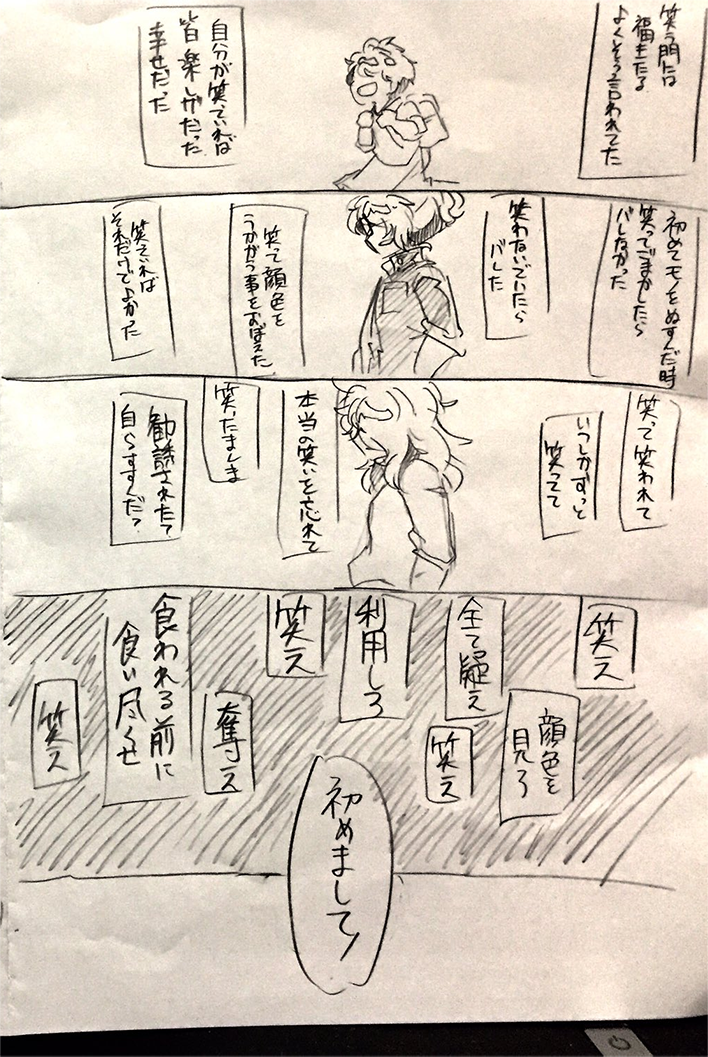 笑う門には
福きたる
よくそう言われてた
自分が笑っていれば
皆楽しげだった
幸せだった
初めてモノをぬすんだ時
笑ってごまかしたら
バレなかった
笑わないでいたら
バレた
笑って顔色を
うかがう事をおぼえた
笑っていれば
それだけでよかった
笑って笑われて
いつしかずっと
笑ってて
本当の笑いを忘れて
笑ったまま
勧誘された?
自らすすんだ?
笑え
顔色を
見ろ
全て疑え
笑え
利用しろ
笑え
奪え
食われる前に
食い尽くせ
笑え
初めまして!